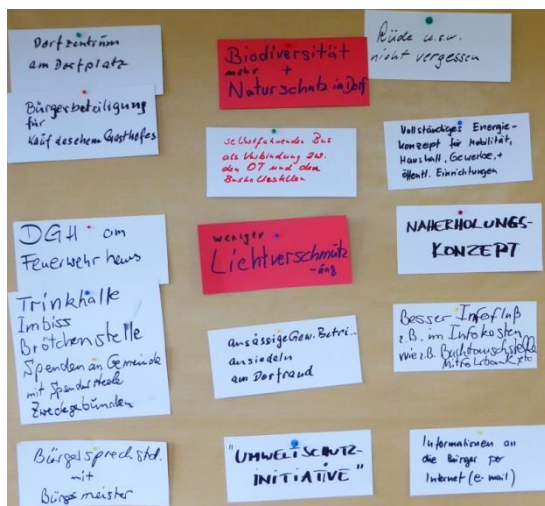 Dorfzentrum
am Dorfplatz
Bürgerbeteiligung
für
Kauf des ehem. Gasthofes
DGH am
Feuerwehrhaus
Trinkhalle
Imbiss
Brötchenstelle
Spenden an Gemeinde
mit Spenderstele
Zweckgebunden
Bürgersprechstd.
mit
Bürgermeister
Biodiversität
mehr +
Naturschutz in Dorf
selbstfahrenden Bus
als Verbindung zw.
den OT und den
Bushaltestellen
weniger
Lichtverschmutz
-ung
ansässige Gew. Betri..
ansiedeln
am Dorfrand
"UMWELTSCHUTZ-
INITIATIVE"
u.s.w.
nicht vergessen
Vollständiges Energie-
konzept für Mobilität,
Haushalt, Gewerbe, +
öffentl. Einrichtungen
NAHERHOLUNGS-
KONZEPT
Besser Infofluß
z.B. im Infokosten
wie z.B. Buchtauschstelle
Mitfahrbank etc
Informationen an
die Bürger per
Internet (e-mail)